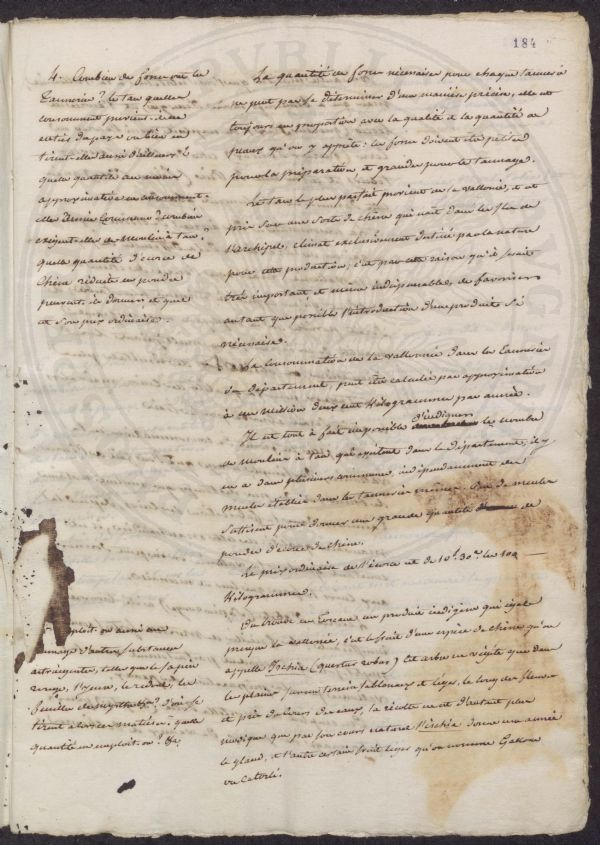 184
4. Combien de fosses ont les
Tanneries? le tan qu'elles
consomment provient-il
entré du pays ou bien en
tirent-elles aussi d'ailleurs?
quelle quantité au moins
approximative en consomment-
elles dernier
exigent-elles de Moulin à Tan?
quelle quantité d'écorce de
Chêne réduite en poudre
peuvent-ils donner et quel
est son prix ordinaire.
La quantité de fosses nécessaires pour chaque tannerie
ne peut pas se déterminer d'une manière précise, elle est
toujours en proportion avec la qualité et la quantité de
peaux qu'on y apprête: les fosses doivent être petites
pour la préparation, et grandes pour le tannage.
Le tan le plus parfait provient de la vallonée, et est
pris sur une sorte de chêne qui nait dans les Iles de
l'archipel, climat exclusivement destiné par la nature
pour cette production, c'est par cette raison qu'il serait
très important et même indispensable, de favoriser
autant que possible l'introduction d'un produit si
nécessaire.
La consommation de la vallonée dans les Tanneries
du département, peut être calculée par approximation
à un million deux cent Kilogrammes par année.
Il est tout à fait impossible d'indiquer le nombre
de moulins à Tan qui existent dans le département, il y
en a dans plusieurs communes, indépendamment des
meules établies dans les tanneries mêmes. Peu de meules
suffisent pour donner une grande quantité de
poudre d'écorce de chêne.
Le prix ordinaire de l'écorce est de 10f. 30c. les 100
Kilogrammes.
On trouve en Toscane un produit indigène qui égale
presque la vallonée, c'est le fruit d'une espèce de chêne qu'on
appelle Ischia (quercus robur) Cet arbre ne végète que dans
les plaines, sur un terrein sablonneux et léger, le long des fleuves
et près du cours des eaux, la récolte en est d'autant plus
modique que par son cours naturel l'ischia donne une année
le gland, et l'autre certain fruit léger qu'on nomme Gallone
ou
emploit-on aussi au
tannage d'autres substances
astringentes, telles que le sapin
rouge, l'yeuse, le redoul, les
feuilles de myrthe &a? d'où se
tirent alors ces matières: quelle
quantité en emploit-on? &a